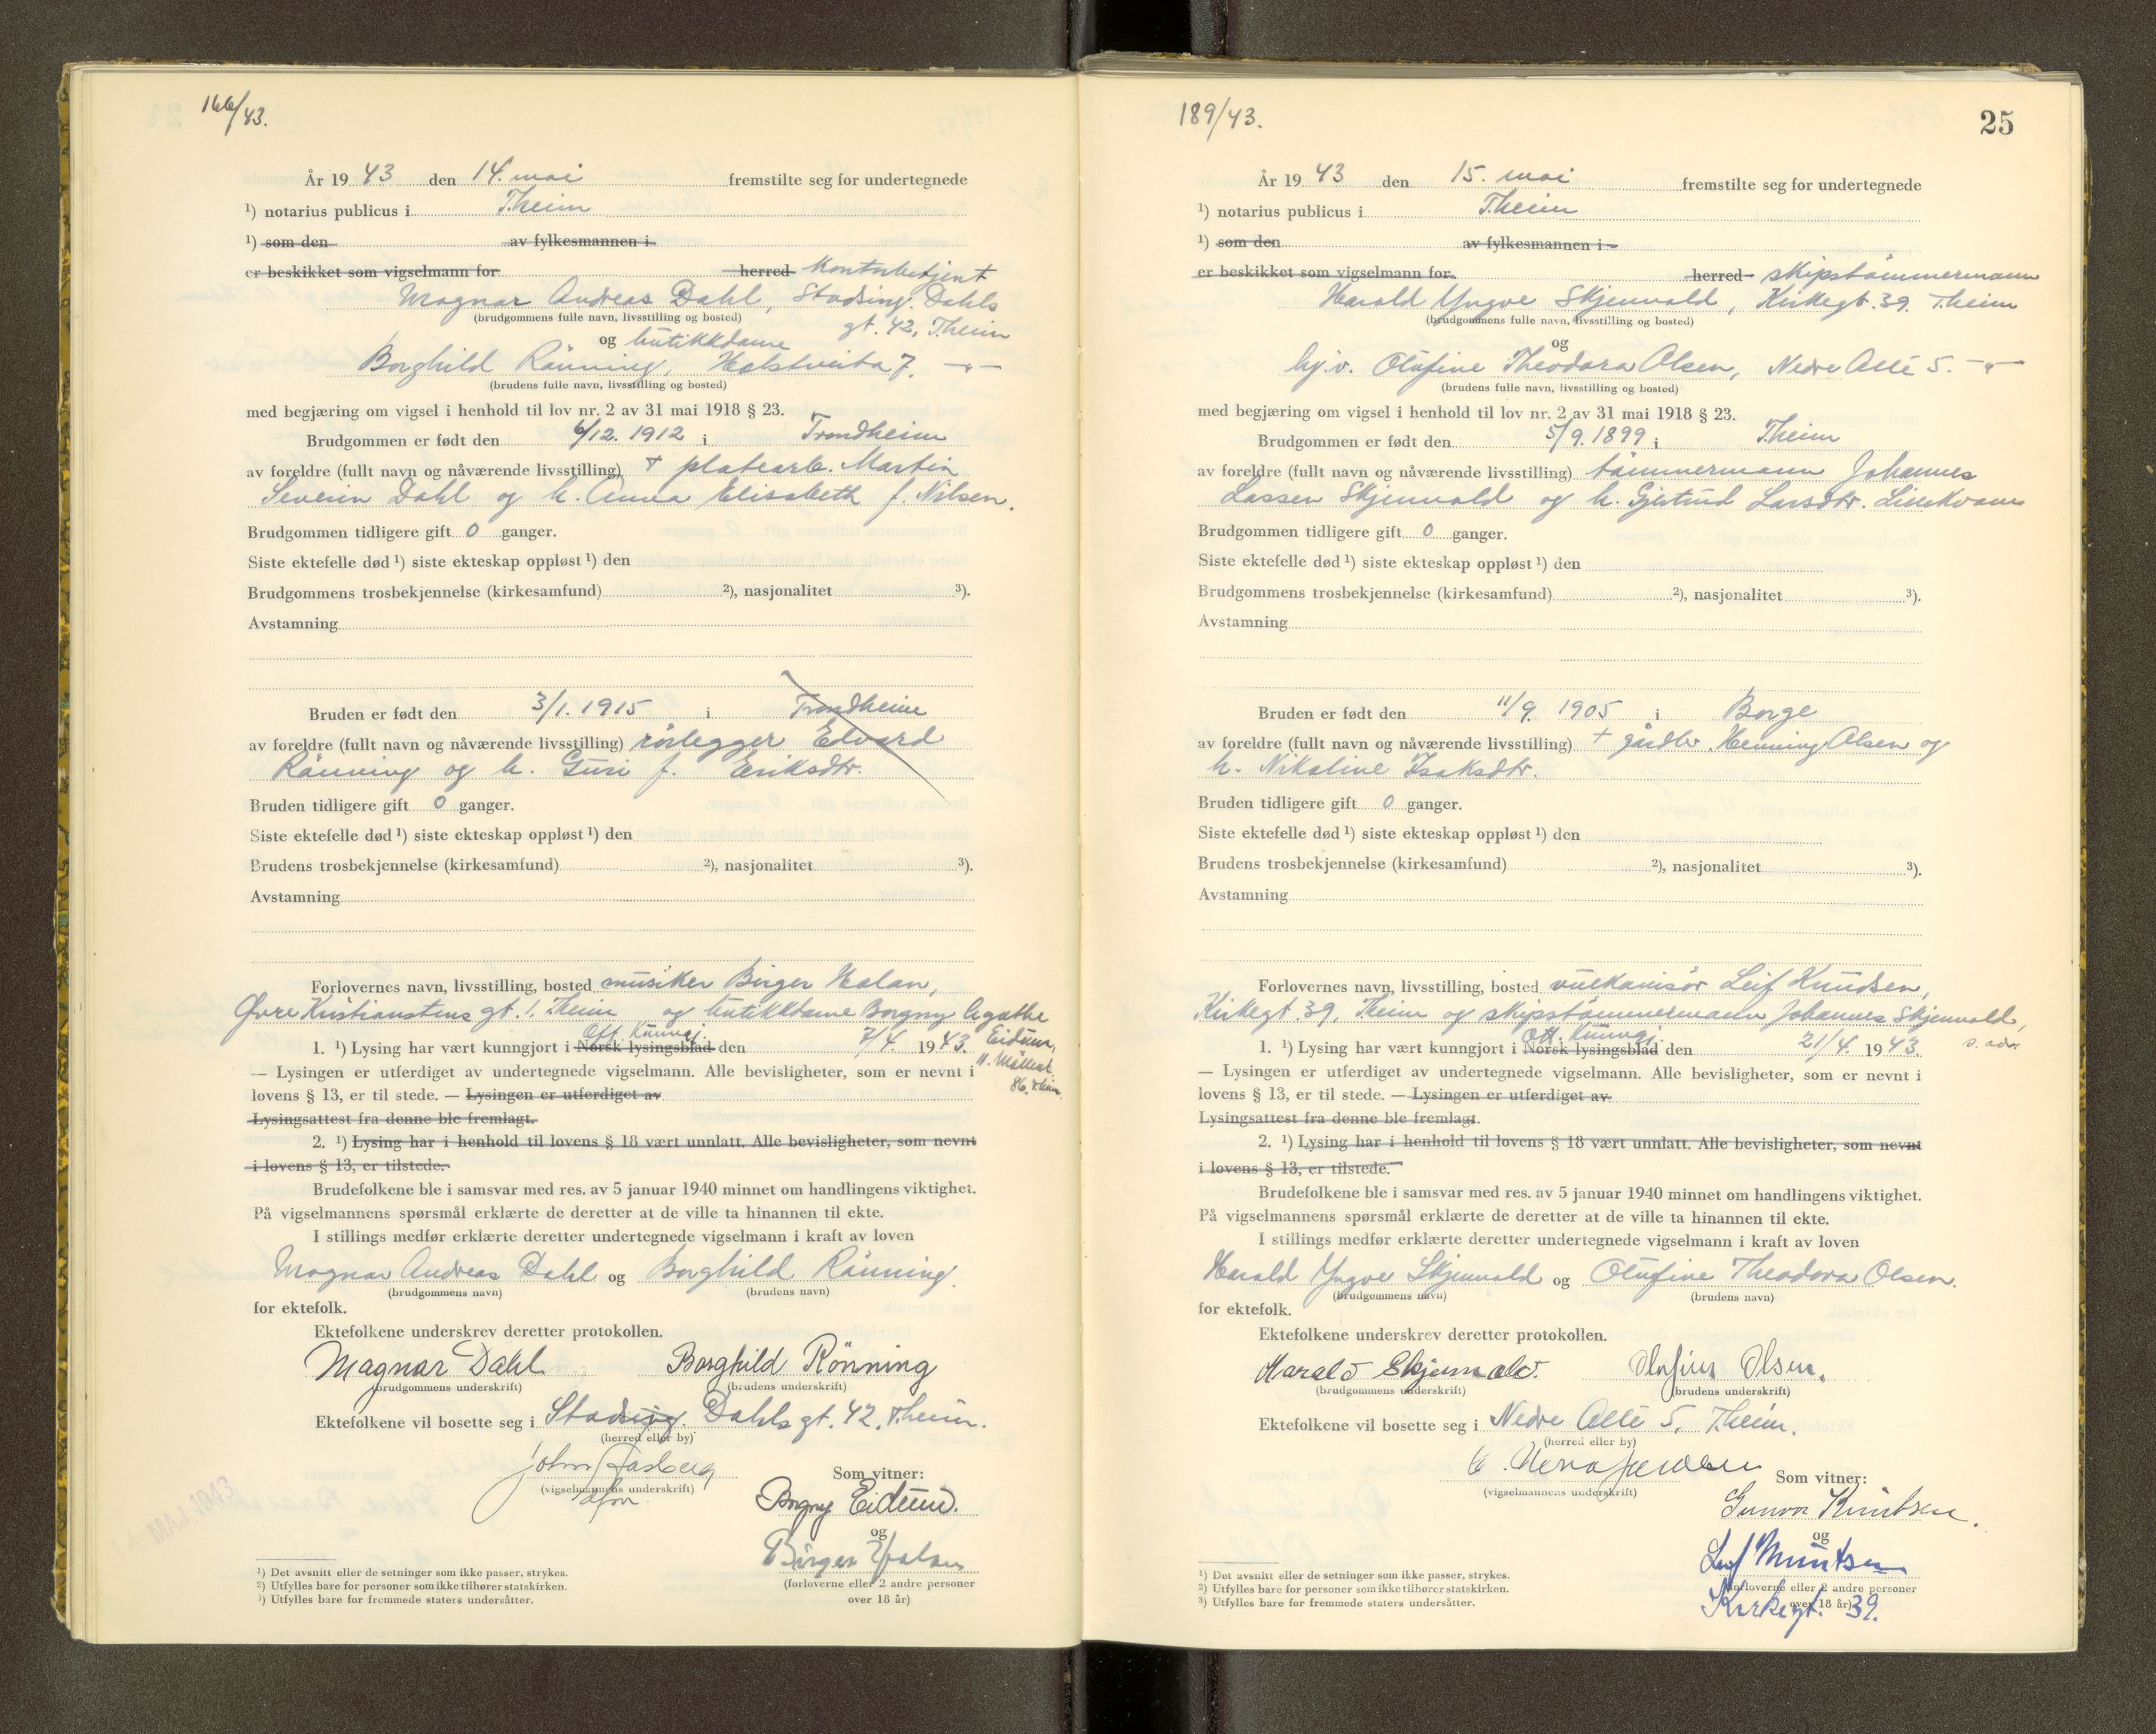 166/43.
År 19 43 den 14. mai fremstilte seg for undertegnede
¹) notarius publicus i Theim
¹) som den av fylkesmannen i
er beskikket som vigselmann for herred kontorbetjent
Magnar Andreas Dahl, Stadsing. Dahls
(brudgommens fulle navn, livsstilling og bosted) gt. 42, Theim
og butikkdame
Borghild Rönning, Holstveita 7. —"—
(brudens fulle navn, livsstilling og bosted)
med begjæring om vigsel i henhold til lov nr. 2 av 31 mai 1918 § 23.
Brudgommen er født den 6/12. 1912 i Trondheim
av foreldre (fullt navn og nåværende livsstilling) + platearb. Martin
Severin Dahl og h. Anna Elisabeth f. Nilsen.
Brudgommen tidligere gift 0 ganger.
Siste ektefelle død ¹) siste ekteskap oppløst ¹) den
Brudgommens trosbekjennelse (kirkesamfund) ²), nasjonalitet ³).
Avstamning
Bruden er født den 3/1. 1915 i Trondheim
av foreldre (fullt navn og nåværende livsstilling) rörlegger Edvard
Rönning og h. Guri f. Eriksdtr.
Bruden tidligere gift 0 ganger.
Siste ektefelle død ¹) siste ekteskap oppløst ¹) den
Brudens trosbekjennelse (kirkesamfund) ²), nasjonalitet ³).
Avstamning
Forlovernes navn, livsstilling, bosted musiker Birger Halan,
Øvre Kristianstens gt. 1. Theim og butikkdame Borgny Agathe
Off. Kunngj.
1. ¹) Lysing har vært kunngjort i Norsk lysingsblad den 7/4. 1943. Eidum,
— Lysingen er utferdiget av undertegnede vigselmann. Alle bevisligheter, som er nevnt i
lovens § 13, er til stede. — Lysingen er utferdiget av 86, Theim
Lysingsattest fra denne ble fremlagt.
2. ¹) Lysing har i henhold til lovens § 18 vært unnlatt. Alle bevisligheter, som nevnt
i lovens § 13, er tilstede.
Brudefolkene ble i samsvar med res. av 5 januar 1940 minnet om handlingens viktighet.
På vigselmannens spørsmål erklærte de deretter at de ville ta hinannen til ekte.
I stillings medfør erklærte deretter undertegnede vigselmann i kraft av loven
Magnar Andreas Dahl og Borghild Rönning.
(brudgommens navn) (brudens navn)
for ektefolk.
Ektefolkene underskrev deretter protokollen.
Magnar Dahl Borghild Rönning
(brudgommens underskrift) (brudens underskrift)
Ektefolkene vil bosette seg i Stadsing. Dahls gt. 42, Theim.
(herred eller by)
John Aasberg Som vitner:
(vigselmannens underskrift)
Borgny Eidum.
og
Birger Halan
(forloverne eller 2 andre personer
over 18 år)
¹) Det avsnitt eller de setninger som ikke passer, strykes.
²) Utfylles bare for personer som ikke tilhører statskirken.
³) Utfylles bare for fremmede staters undersåtter.
189/43.
25
År 19 43 den 15. mai fremstilte seg for undertegnede
¹) notarius publicus i Theim
¹) som den av fylkesmannen i
er beskikket som vigselmann for herred skipstömmermann
Harald Yngve Skjenvald, Kirkegt. 39. Theim
(brudgommens fulle navn, livsstilling og bosted)
og
hj.v. Olufine Theodora Olsen, Nedre Allé 5. —"—
(brudens fulle navn, livsstilling og bosted)
med begjæring om vigsel i henhold til lov nr. 2 av 31 mai 1918 § 23.
Brudgommen er født den 5/9. 1899 i Theim
av foreldre (fullt navn og nåværende livsstilling) tömmermann Johannes
Lassen Skjenvald og h. Gjertrud Larsdtr. Lillekvam
Brudgommen tidligere gift 0 ganger.
Siste ektefelle død ¹) siste ekteskap oppløst ¹) den
Brudgommens trosbekjennelse (kirkesamfund) ²), nasjonalitet ³).
Avstamning
Bruden er født den 11/9. 1905 i Borge
av foreldre (fullt navn og nåværende livsstilling) + gårdbr. Henning Olsen og
h. Nikoline Isaksdtr.
Bruden tidligere gift 0 ganger.
Siste ektefelle død ¹) siste ekteskap oppløst ¹) den
Brudens trosbekjennelse (kirkesamfund) ²), nasjonalitet ³).
Avstamning
Forlovernes navn, livsstilling, bosted vulkanisör Leif Knudsen,
Kirkegt. 39, Theim og skipstömmermann Johannes Skjenvald,
Off. Kunngj.
1. ¹) Lysing har vært kunngjort i Norsk lysingsblad den 21/4. 1943. s. adr.
— Lysingen er utferdiget av undertegnede vigselmann. Alle bevisligheter, som er nevnt i
lovens § 13, er til stede. — Lysingen er utferdiget av
Lysingsattest fra denne ble fremlagt.
2. ¹) Lysing har i henhold til lovens § 18 vært unnlatt. Alle bevisligheter, som nevnt
i lovens § 13, er tilstede.
Brudefolkene ble i samsvar med res. av 5 januar 1940 minnet om handlingens viktighet.
På vigselmannens spørsmål erklærte de deretter at de ville ta hinannen til ekte.
I stillings medfør erklærte deretter undertegnede vigselmann i kraft av loven
Harald Yngve Skjenvald og Olufine Theodora Olsen.
(brudgommens navn) (brudens navn)
for ektefolk.
Ektefolkene underskrev deretter protokollen.
Harald Skjenvald. Olufine Olsen.
(brudgommens underskrift) (brudens underskrift)
Ektefolkene vil bosette seg i Nedre Allé 5, Theim.
(herred eller by)
Som vitner:
(vigselmannens underskrift)
Gunvor Knutsen.
og
Leif Knutsen
(forloverne eller 2 andre personer
over 18 år)
Kirkegt. 39.
¹) Det avsnitt eller de setninger som ikke passer, strykes.
²) Utfylles bare for personer som ikke tilhører statskirken.
³) Utfylles bare for fremmede staters undersåtter.